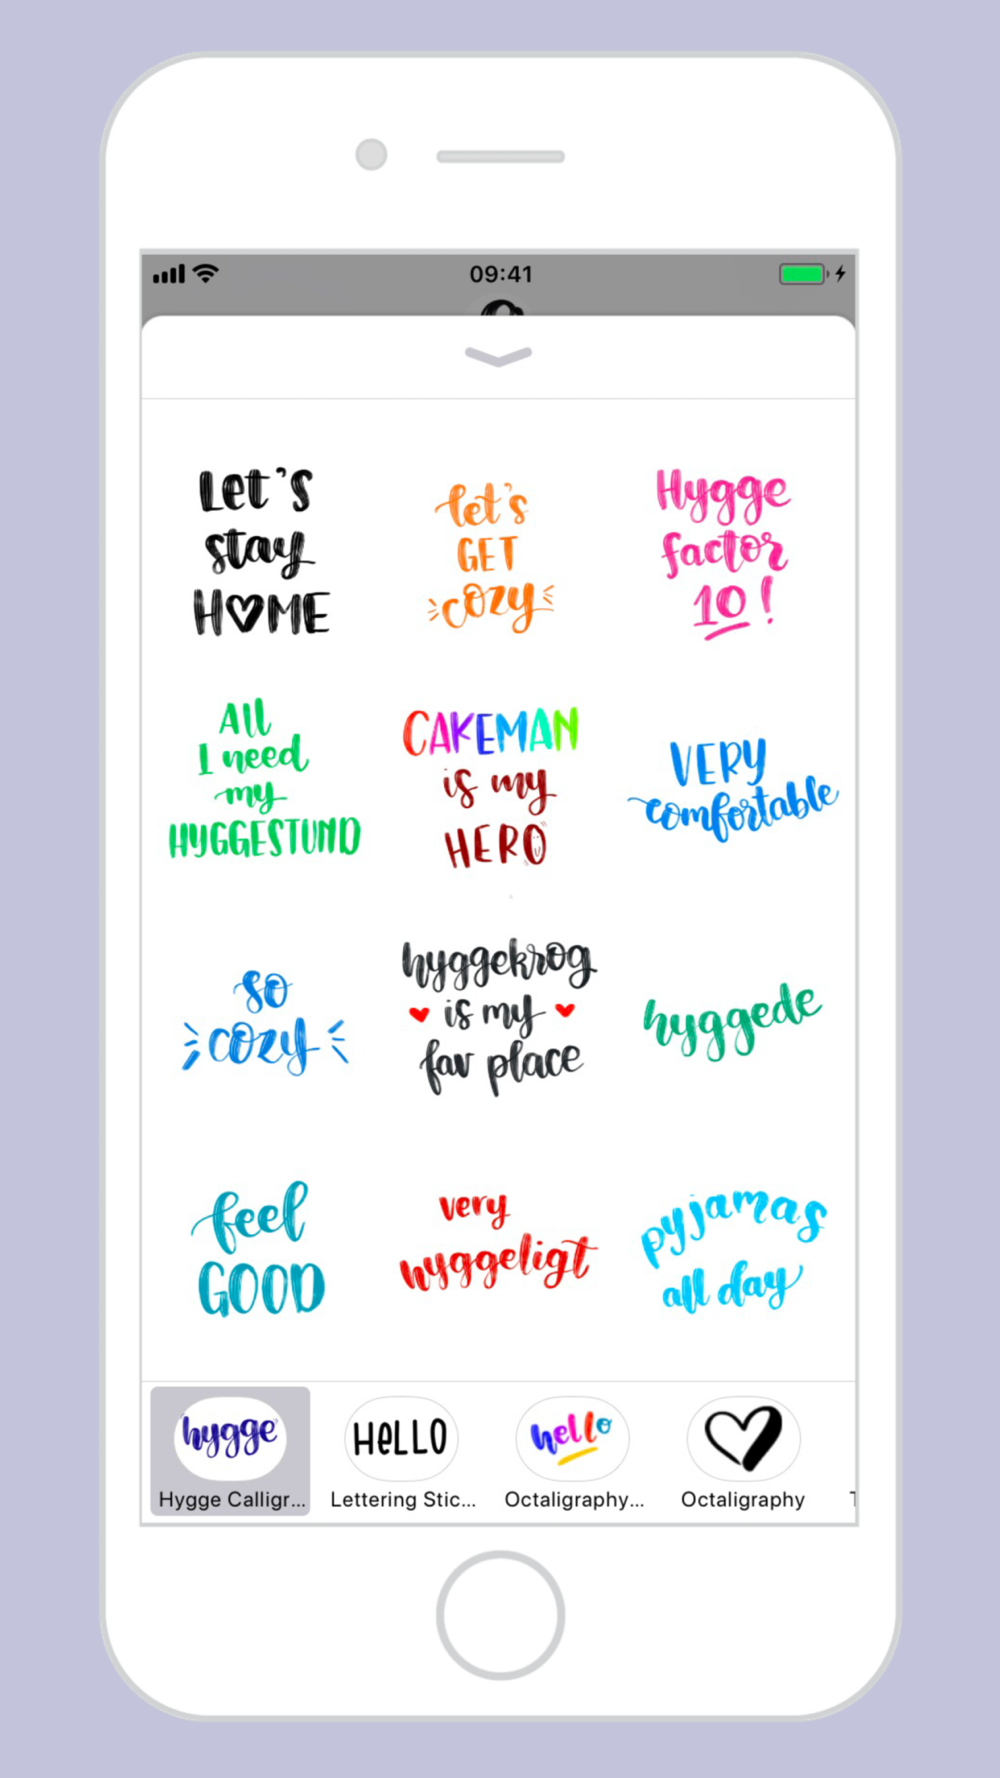 09:41
Let's
stay
HOME
let's
GET
cozy
Hygge
factor
10!
All
I need
my
HYGGESTUND
CAKEMAN
is my
HERO
VERY
comfortable
so
cozy
hyggekrog
is my
fav place
hyggede
feel
GOOD
very
hyggeligt
pyjamas
all day
hygge
HeLLO
hello
Hygge Calligr...
Lettering Stic...
Octaligraphy...
Octaligraphy